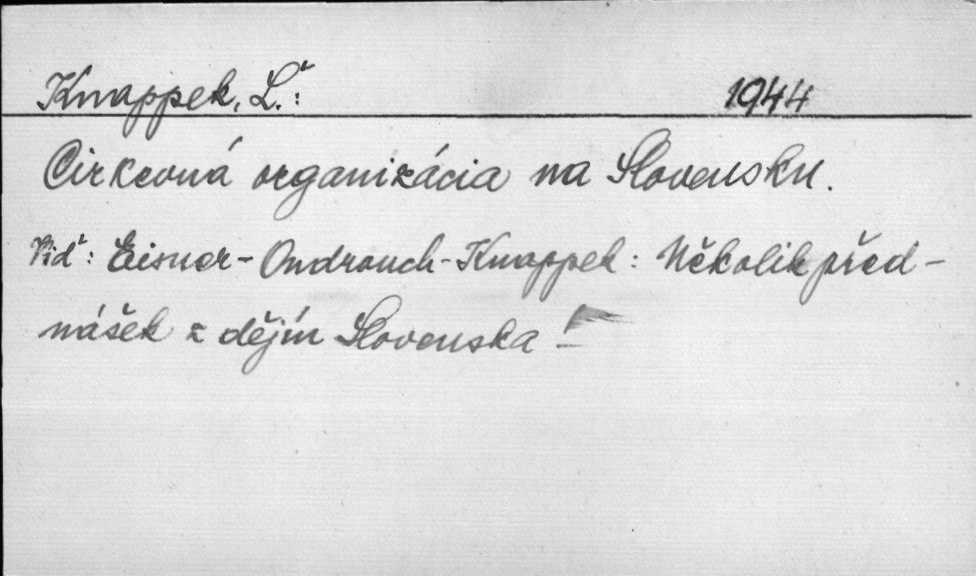 Knappek, Ľ.: 1944
Cirkevná organizácia na Slovensku.
Viď: Eisner - Ondrouch - Knappek: Několik před-
nášek z dějín Slovenska!